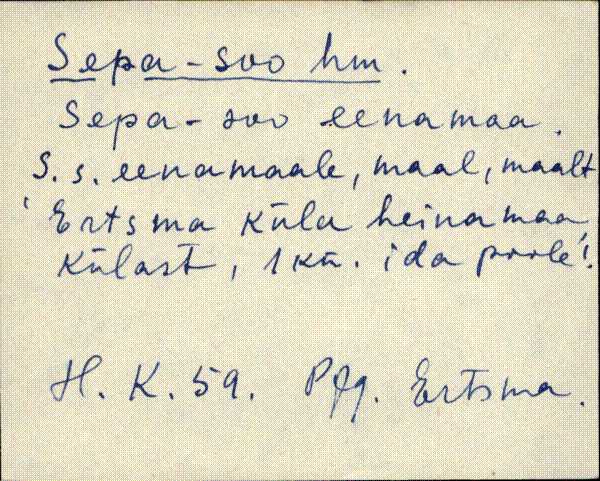 Sepa-soo hm.
Sepa-soo eenamaa.
S. s. eenamaale, maal, maalt
'Ertsma küla heinamaa,
külast, 1 km. ida poole'.
H. K. 59. Plg. Ertsma.